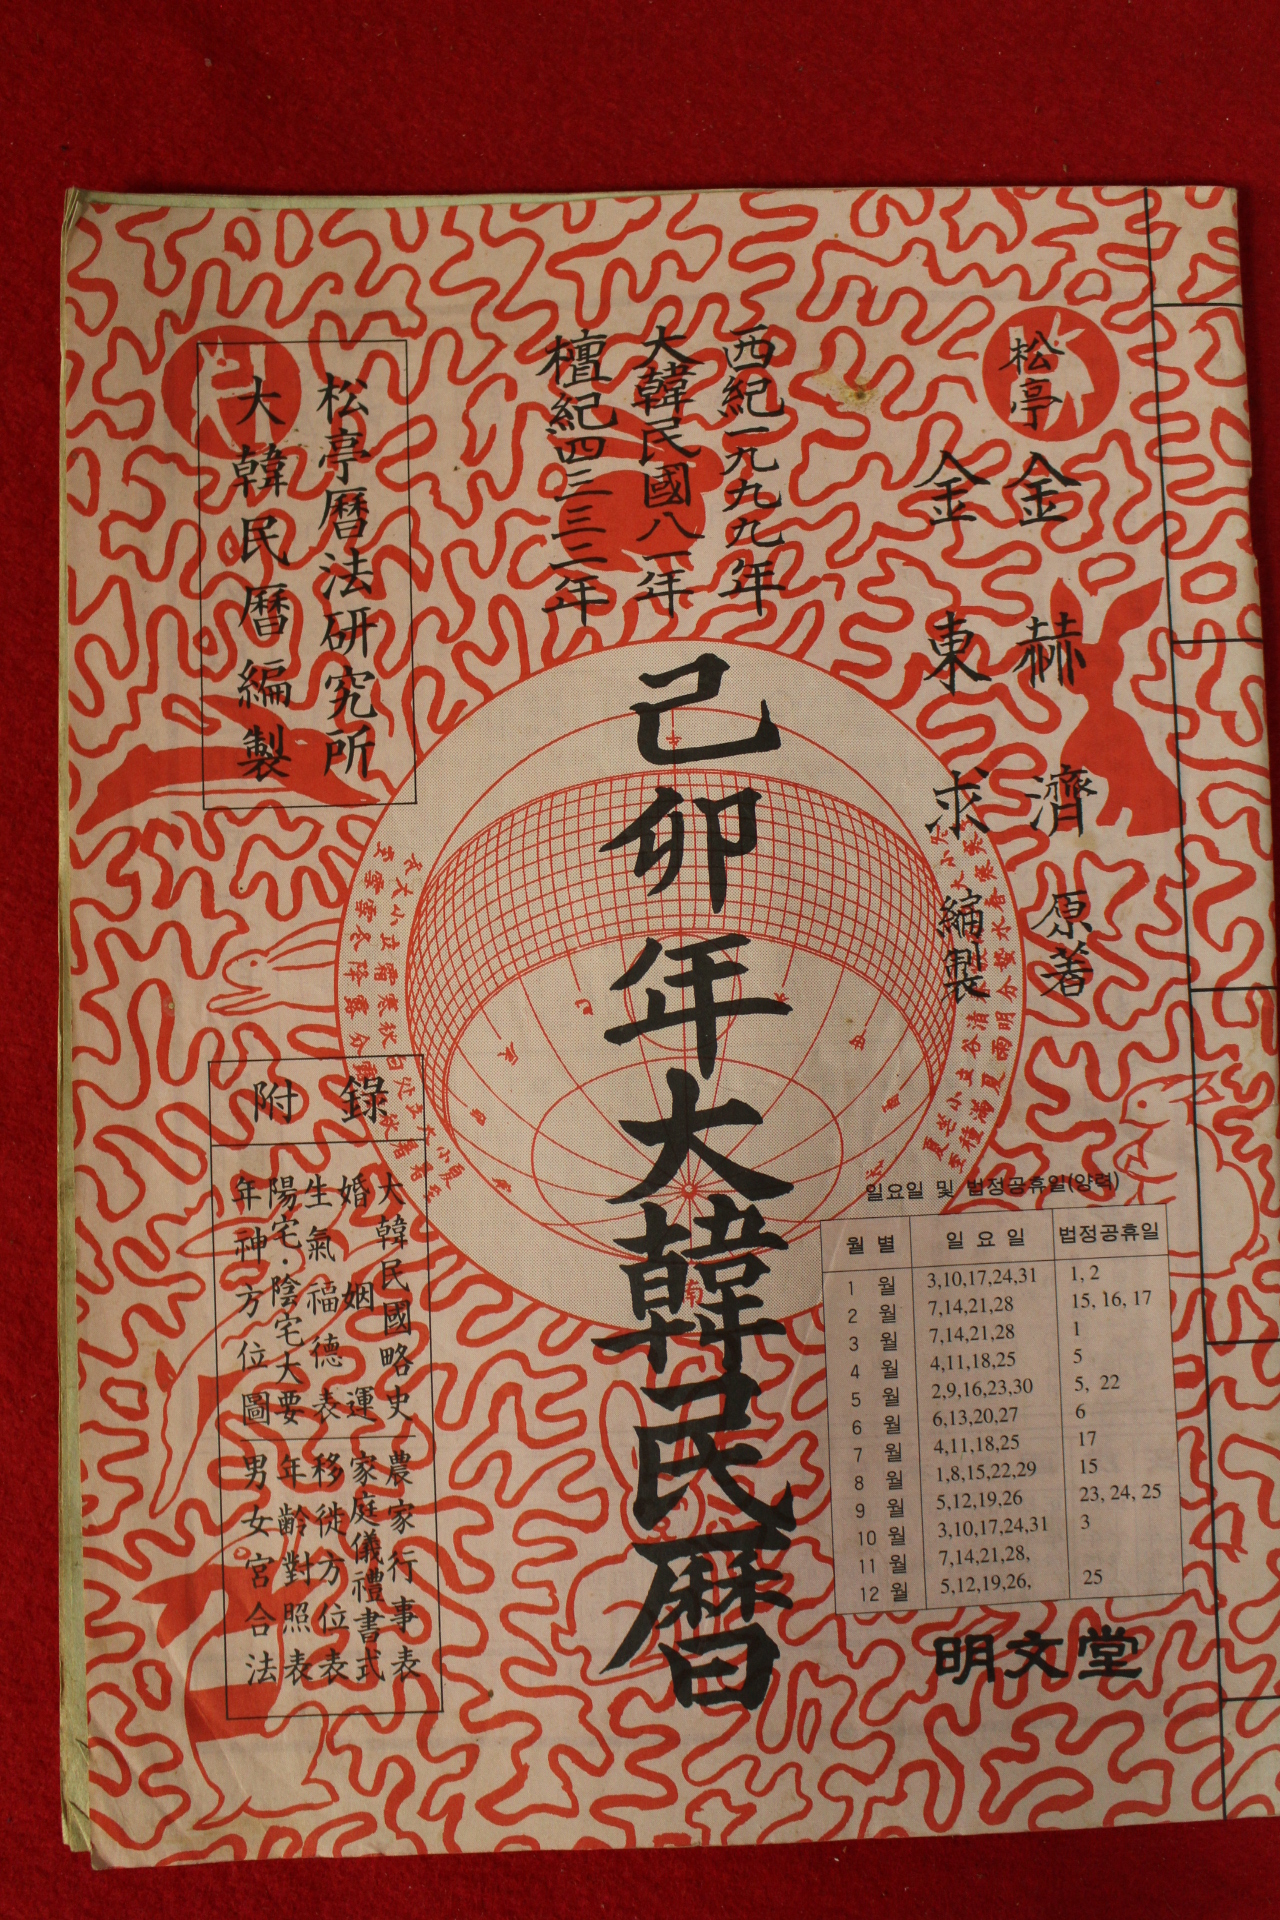 西紀一九九九年
大韓民國八一年
檀紀四三三二年
己卯年大韓民曆
松亭 金赫濟 原著
金東求 編製
松亭曆法硏究所
大韓民曆編製
附錄
大韓民國略史
婚姻運
生氣福德表
陽宅·陰宅大要
年神方位圖
農家行事表
家庭儀禮書式
移徙方位表
年齡對照表
男女宮合法
일요일 및 법정공휴일(양력)
월 별 일 요 일 법정공휴일
1 월 3,10,17,24,31 1, 2
2 월 7,14,21,28 15, 16, 17
3 월 7,14,21,28 1
4 월 4,11,18,25 5
5 월 2,9,16,23,30 5, 22
6 월 6,13,20,27 6
7 월 4,11,18,25 17
8 월 1,8,15,22,29 15
9 월 5,12,19,26 23, 24, 25
10 월 3,10,17,24,31 3
11 월 7,14,21,28,
12 월 5,12,19,26, 25
明文堂